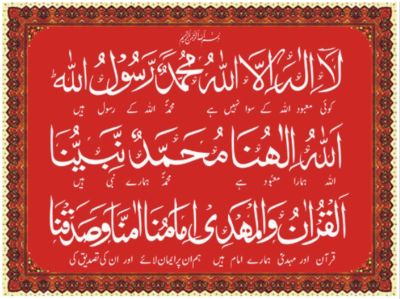 بسم اللہ الرحمن الرحیم
لَا اِلٰهَ اِلَّا اللهُ مُحَمَّدٌ رَّسُوْلُ اللهِ
کوئی معبود اللہ کے سوا نہیں ہے محمدؐ اللہ کے رسول ہیں
اَللهُ اِلٰهُنَا مُحَمَّدٌ نَبِيُّنَا
اللہ ہمارا معبود ہے محمدؐ ہمارے نبی ہیں
اَلْقُرْاٰنُ وَالْمَهْدِى اِمَامُنَا اٰمَنَّا وَصَدَّقْنَا
قرآن اور مہدیؑ ہمارے امام ہیں ہم ان پر ایمان لائے اور ان کی تصدیق کی